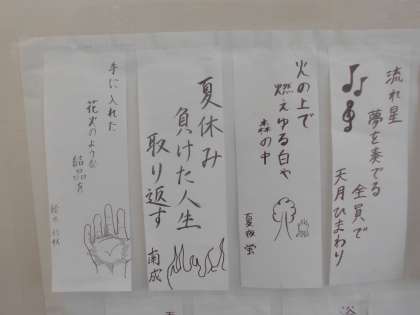 流れ星
夢を奏でる
全員で
天月ひまわり
火の上で
燃えゆる白や
森の中
夏夜 蛍
夏休み
負けた人生
取り返す
南成
手に入れた
花火のような